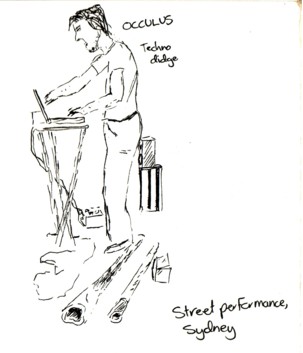 OCCULUS
Techno
didge
Street performance,
Sydney